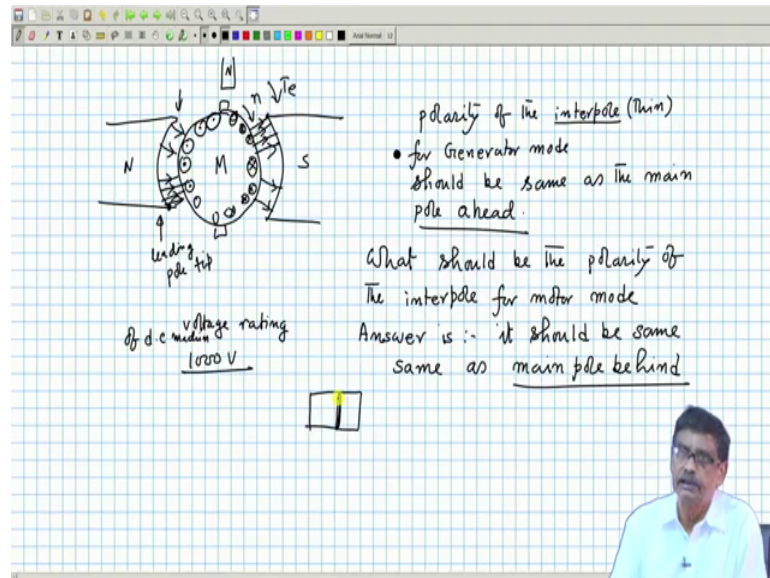 Arial Normal 12
N
n
Te
N
M
S
leading
pole tip
voltage rating
of d.c machin
1000 V
polarity of the interpole (Thin)
• for Generator mode
should be same as the main
pole ahead.
What should be the polarity of
the interpole for motor mode
Answer is :- it should be same
same as main pole behind